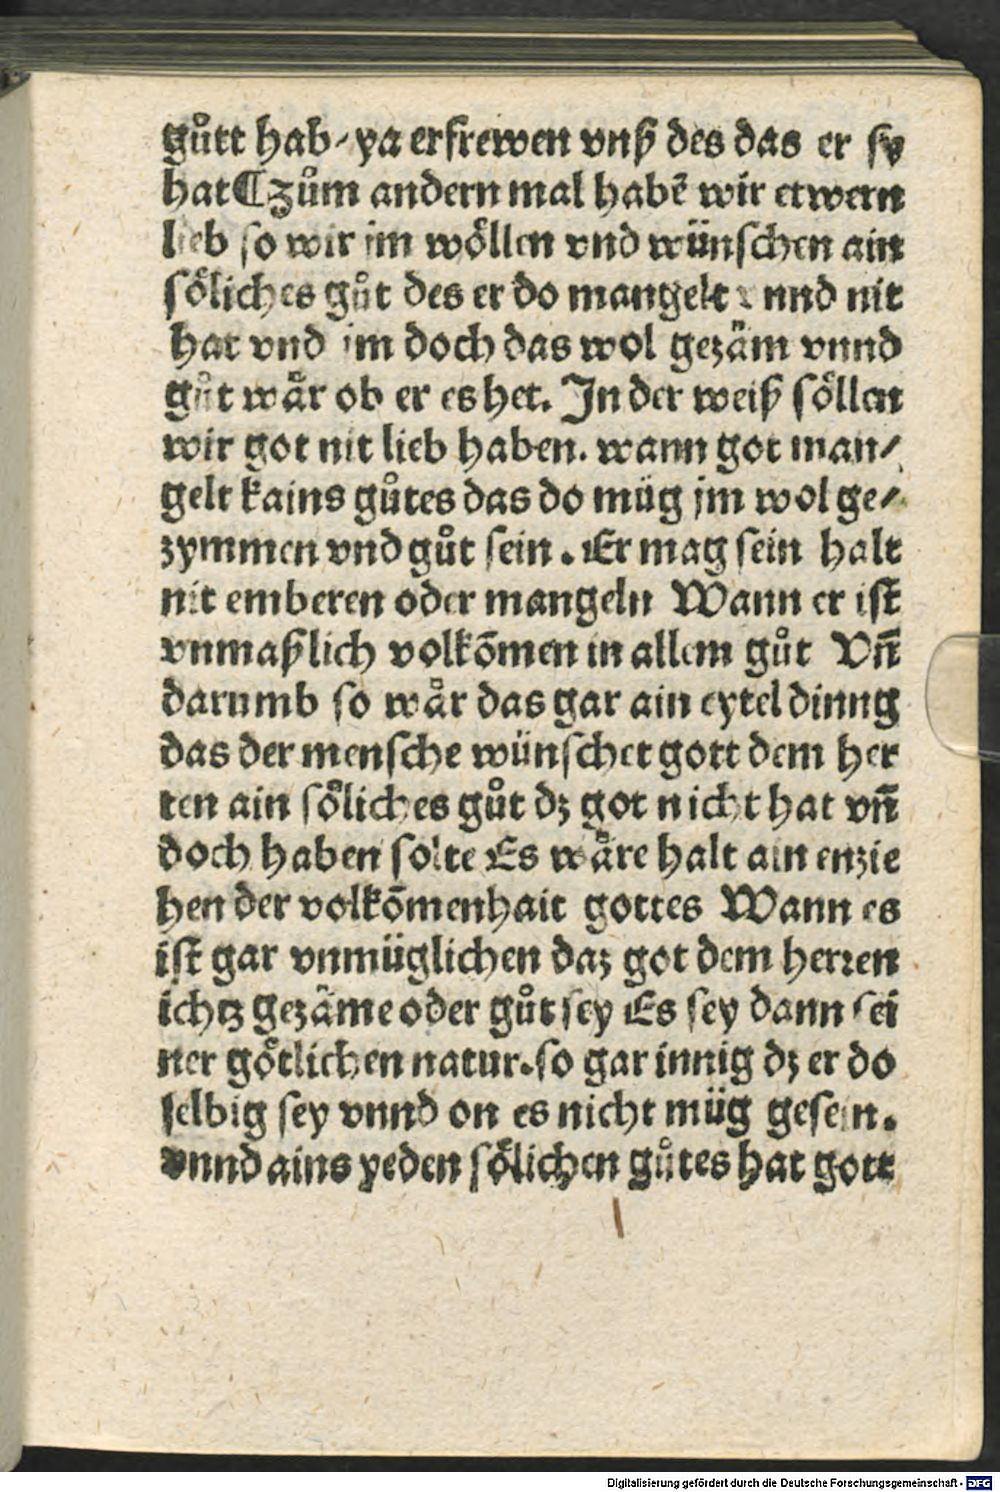 gůtt hab / ya erfrewen vnß des das er sy
hat ¶ zům andern mal habē wir etwern
lieb so wir im wöllen vnd wünschen ain
söliches gůt des er do mangelt vnnd nit
hat vnd im doch das wol gezäm vnnd
gůt wår ob er es het. In der weiß söllen
wir got nit lieb haben. wann got man/
gelt kains gůtes das do müg jm wol ge/
zymmen vnd gůt sein. Er mag sein halt
nit emberen oder mangeln Wann er ist
vnmaßlich volkōmen in allem gůt Vñ
darumb so wår das gar ain eytel dinng
das der mensche wünschet gott dem her
ren ain söliches gůt dz got nicht hat vñ
doch haben solte Es wåre halt ain enzie
hen der volkōmenhait gottes Wann es
ist gar vnmüglichen daz got dem herren
ichtz gezäme oder gůt sey Es sey dann sei
ner götlichen natur. so gar innig dz er do
selbig sey vnnd on es nicht müg gesein.
vnnd ains yeden sölichen gůtes hat gott
Digitalisierung gefördert durch die Deutsche Forschungsgemeinschaft - DFG